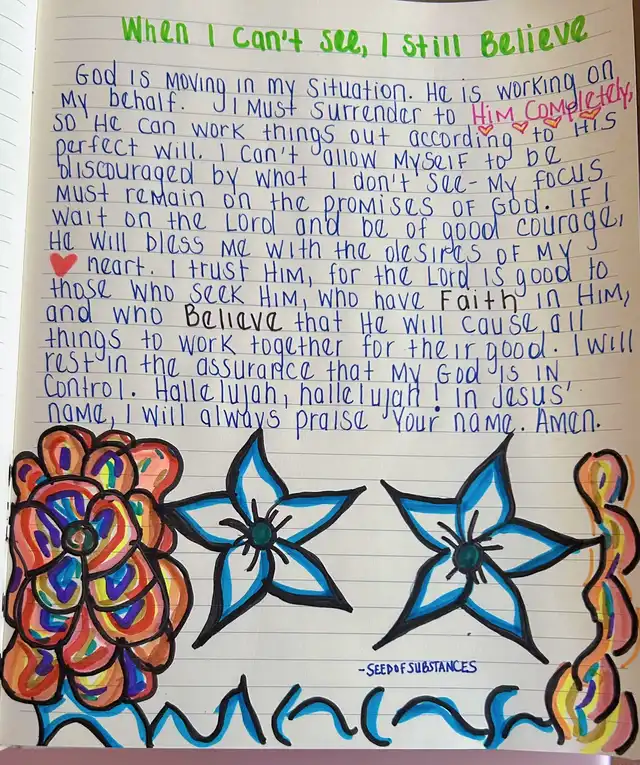 When I Can't see, I still Believe
God is moving in my situation. He is working on
my behalf. I must surrender to Him completely,
so He can work things out according to His
perfect will. I can't allow myself to be
discouraged by what I don't see - my focus
must remain on the promises of God. If I
wait on the Lord and be of good courage,
He will bless me with the desires of my
heart. I trust Him, for the Lord is good to
those who seek Him, who have Faith in Him,
and who Believe that He will cause all
things to work together for their good. I will
rest in the assurance that my God is in
control. Hallelujah, hallelujah! In Jesus'
name, I will always praise Your name. Amen.
-SEEDOFSUBSTANCES